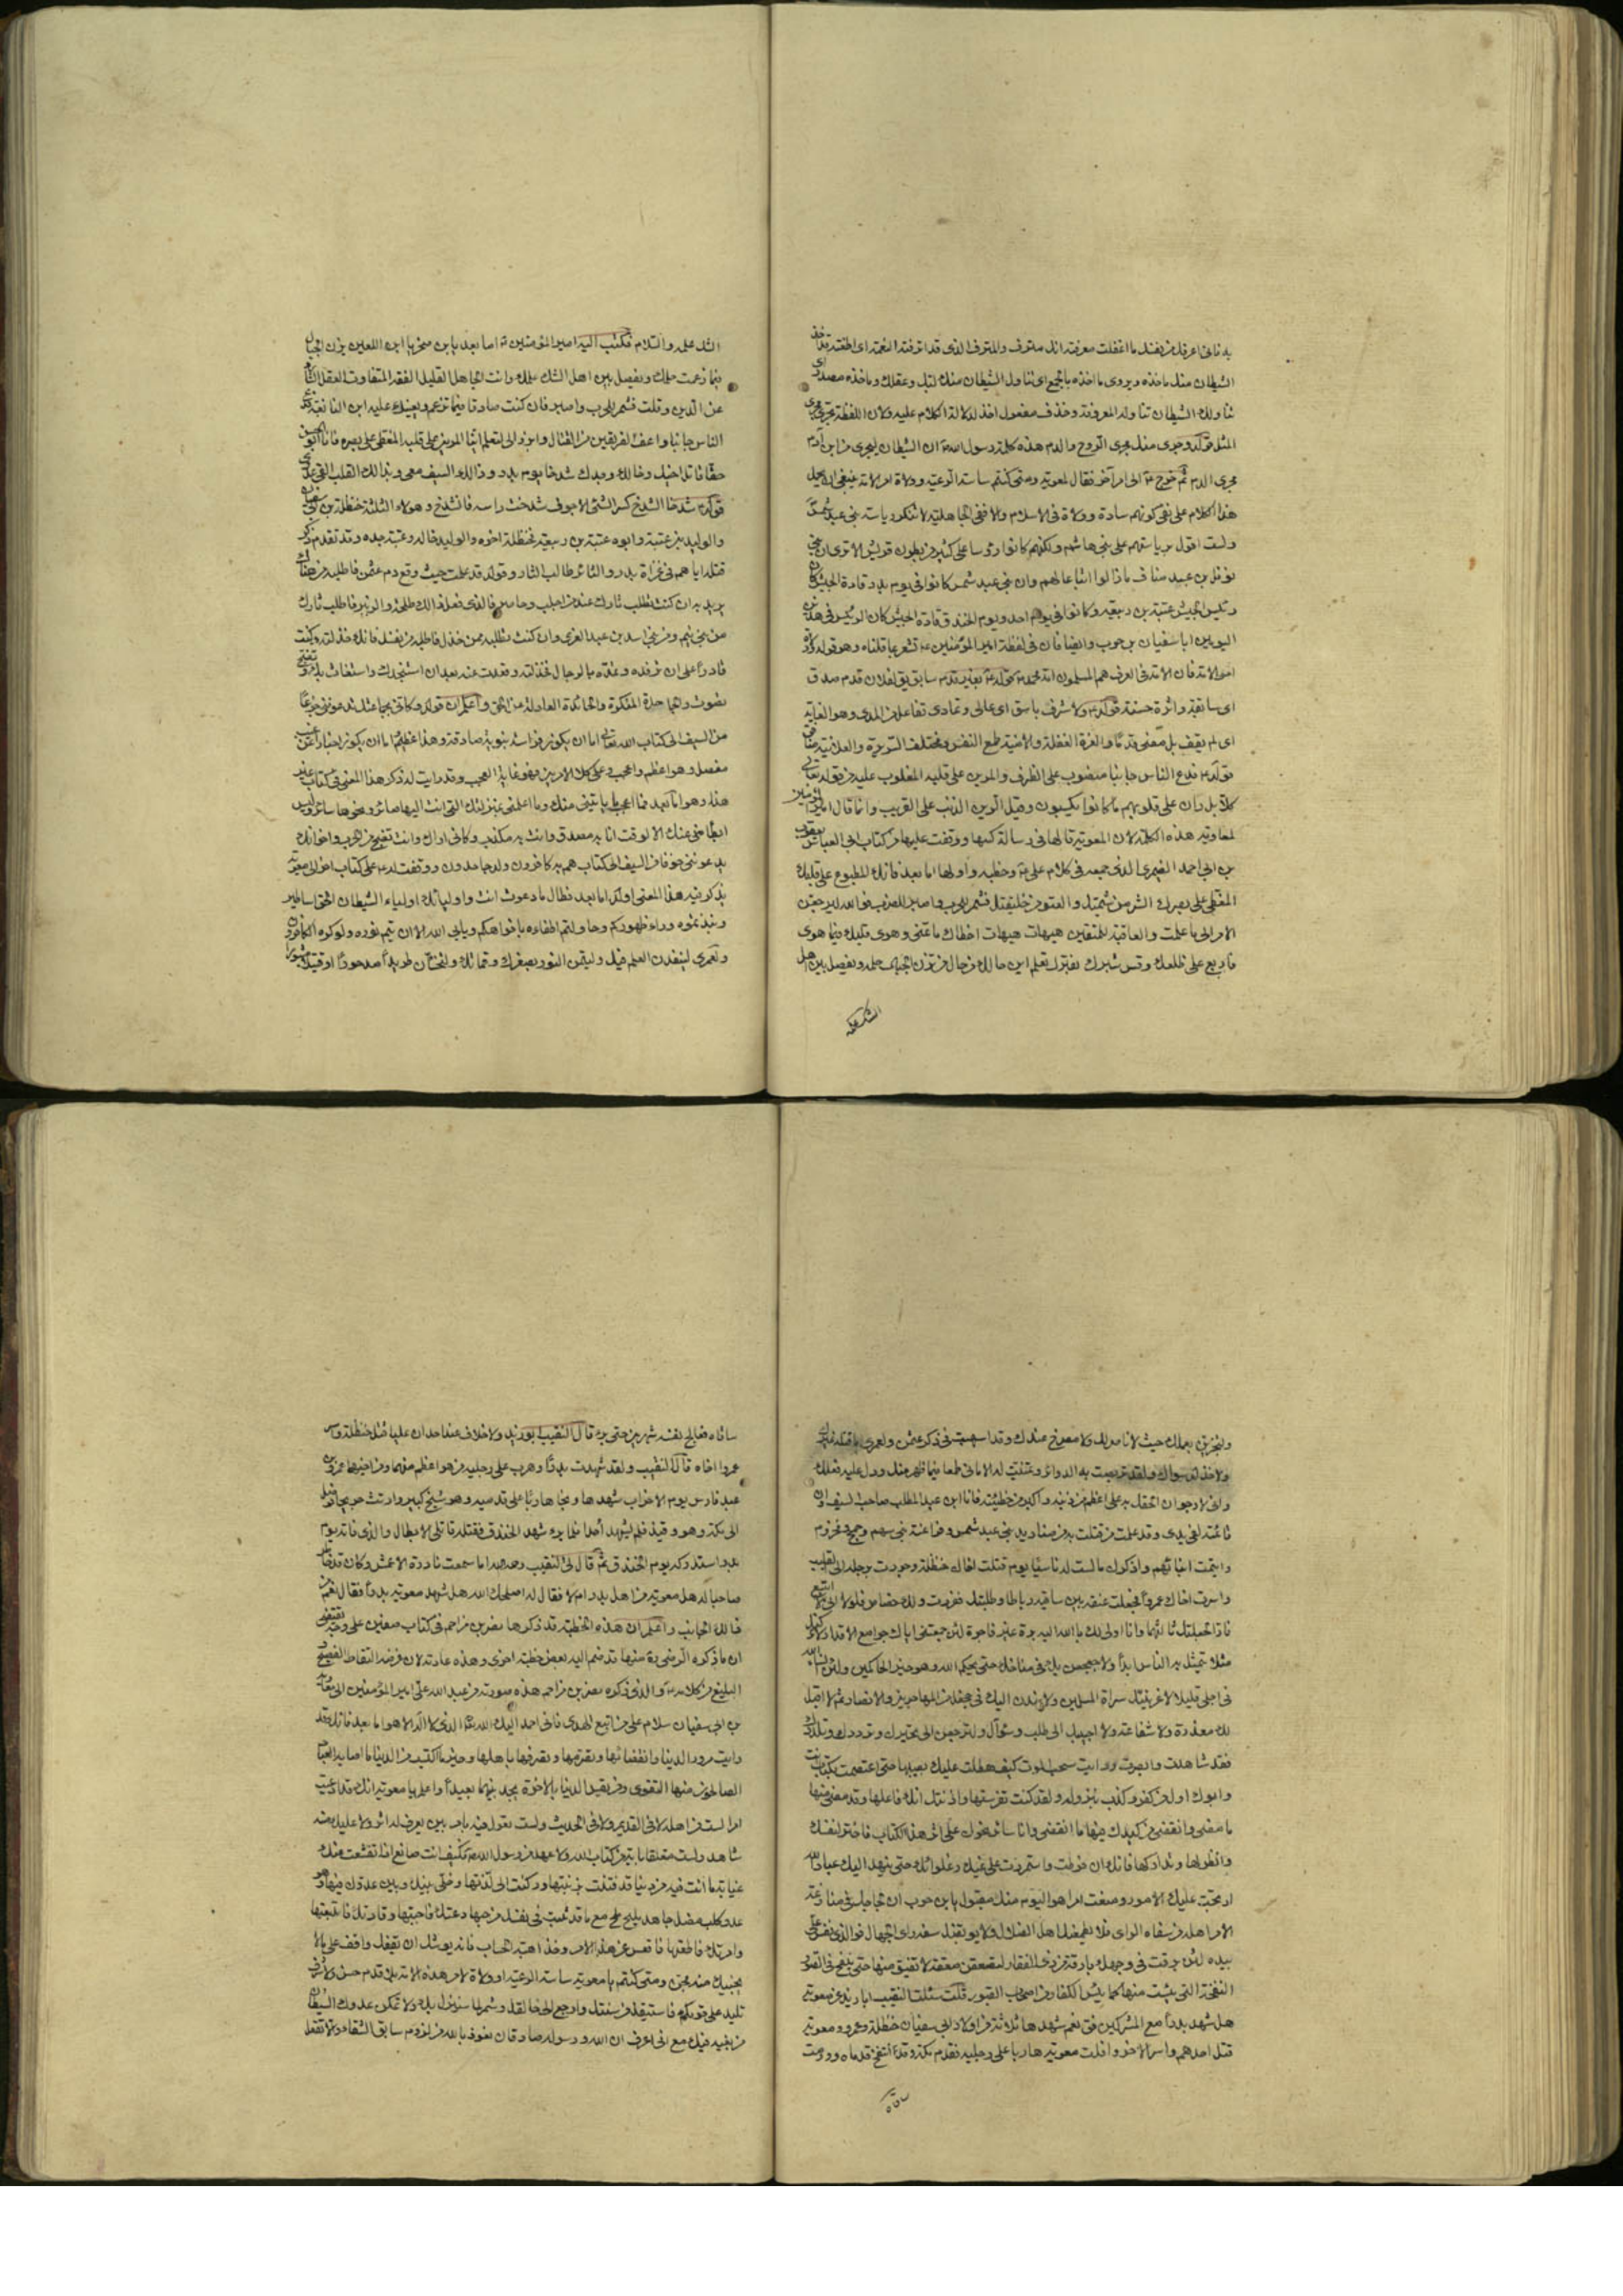 به فانى اعرفك من نفسك ما اغفلت معرفته انك مترف والمترف الذى قد اترفته النعمة اى اطغته قد اخذ
الشيطان منك ماخذه ويروى ماخذه بالجمع اى تناول الشيطان منك لبك وعقلك وماخذه مصدر اى
تناولك الشيطان تناوله المعروف وحذف مفعول اخذ لدلالة الكلام عليه ولان اللفظة تجرى مجرى
المثل قوله وجرى منك مجرى الروح والدم هذه كلمة رسول الله ان الشيطان ليجرى من ابن آدم
مجرى الدم ثم خرج الى امر آخر فقال لمعوية ومتى كنتم ساسة الرعية وولاة امر الامة ينبغى ان يحمل
هذا الكلام على نفى كونهم سادة وولاة فى الاسلام والا ففى الجاهلية لا ننكر رياسة بنى عبد شمس
ولست اقول برياستهم على بنى هاشم ولكنهم كانوا رؤسا على كثير من بطون قريش الا ترى ان بنى
نوفل بن عبد مناف ما زالوا اتباعا لهم وان بنى عبد شمس كانوا فى يوم بدر قادة الجيش كان
رئيس الجيش عتبة بن ربيعة وكانوا فى يوم احد ويوم الخندق قادة الجيش كان الرئيس فى هذين
اليومين ابا سفيان بن حرب وايضا فان فى لفظة امير المؤمنين ع تشعر بما قلناه وهو قوله ولاة
امر الامة فان الامة فى العرف هم المسلمون امة محمد قوله ع بغير قدم سابق يق لفلان قدم صدق
اى سابقة واثرة حسنة قوله ع ولا شرف باسق اى عالى وتمادى تفاعل من المدى وهو الغاية
اى لم يقف بل مضى قدما والغرة الغفلة والامنية طمع النفس ومختلف السريرة والعلانية منافق
قوله ع فدع الناس جانبا منصوب على الظرف والمرين على قلبه المغلوب عليه من قوله تعالى
كلا بل ران على قلوبهم ما كانوا يكسبون وقيل الرين الذنب على الذنب وانما قال امير المؤمنين
لمعاوية هذه الكلمة لان المعوية قالها فى رسالة كتبها ووقفت عليها من كتاب ابى العباس يعقوب
بن ابى احمد الصيمرى الذى جمعه فى كلام على ع وخطبه واولها اما بعد فانك المطبوع على قلبك
المغطى على بصرك الشر من شيمتك والعتو من خليقتك فشمر للحرب واصبر للضرب فوالله ليرجعن
الامر الى ما علمت والعاقبة للمتقين هيهات هيهات اخطاك ما تمنى وهوى قلبك فيما هوى
فاربع على ظلعك وقس شبرك بفترك تعلم اين حالك من حال من يزن الجبال حلمه ويفصل بين اهل
الشك علمه
الشك علمه والسلام فكتب اليه امير المؤمنين ع اما بعد يا بن صخر يا ابن اللعين يزن الجبال
فيما زعمت حلمك ويفصل بين اهل الشك علمك وانت الجاهل القليل الفقه المتفاوت العقل الشارد
عن الدين وقلت فشمر للحرب واصبر فان كنت صادقا فيما تزعم ويعينك عليه ابن النابغة فدع
الناس جانبا واعف الفريقين من القتال وابرز الى لتعلم اينا المرين على قلبه المغطى على بصره فانا ابو الحسن
حقا قاتل اخيك وخالك وجدك شدخا يوم بدر وذالك السيف معى وبذالك القلب القى عدوى
قوله ع شدخا الشدخ كسر الشئ الاجوف شدخت راسه فانشدخ وهؤلاء الثلثة حنظلة بن ابى سفيان
والوليد بن عتبة وابوه عتبة بن ربيعة فحنظلة اخوه والوليد خاله وعتبة جده وقد تقدم ذكر
قتله اياهم فى غزاة بدر والثائر طالب الثار وقوله قد علمت حيث وقع دم عثمن فاطلبه من هناك
يريد به ان كنت تطلب ثارك عند من اجلب وحاصر فالذى فعل ذالك طلحة والزبير فاطلب ثارك
من بنى تيم ومن بنى اسد بن عبد العزى وان كنت تطلبه ممن خذل فاطلبه من نفسك فانك خذلته وكنت
قادرا على ان ترفده وتمده بالرجال فخذلته وقعدت عنه بعد ان استنجدك واستغاث بك وتضج
تصوت والحايدة المنكرة والحائدة العادلة عن الحق واعلم ان قوله وكانى بجماعتك تدعوننى جزعا
من السيف الى كتاب الله تعالى اما ان يكون فراسة نبوية صادقة وهذا عظيم واما ان يكون اخبارا عن غيب
مفصل وهو اعظم واعجب وعلى كلا الامرين فهو غاية العجب وقد رايت له ذكر هذا المعنى فى كتاب غير
هذا وهو اما بعد فما اعجب ما ياتينى منك وما اعلمنى بمنزلتك التى انت اليها صائر ونحوها سائر وليس
ابطأ منى عنك الا لوقت انا به مصدق وانت به مكذب وكانى اراك وانت تضج من الحرب واخوانك
يدعوننى خوفا من السيف الى كتاب هم به كافرون وله جاحدون ووقفت له ع على كتاب اخر الى معوية
يذكر فيه هذا المعنى اوله اما بعد فطال ما دعوت انت واولياءك اولياء الشيطان الحق اساطير
ونبذتموه وراء ظهوركم وحاولتم اطفاءه بافواهكم ويابى الله الا ان يتم نوره ولو كره الكافرون
ولعمرى لينفذن العلم فيك وليتمن النور بصغرك وقمائك ولتخسأن طريدا مدحورا او قتيلا مثبورا
ولتجزين بعملك حيث لا ناصر لك ولا مصرخ عندك وقد اسهبت فى ذكر عثمن ولعمرى ما قتله غيرك
ولا خذله سواك ولقد تربصت به الدوائر وتمنيت له الامانى طمعا فيما ظهر منك ودل عليه فعلك
وانى لارجو ان الحقك به على اعظم من ذنبه واكبر من خطيئته فانا ابن عبد المطلب صاحب السيف وان
قائمه لفى يدى وقد علمت من قتلت به من صناديد بنى عبد شمس وفراعنة بنى سهم وجمح ومخزوم
وايتمت ابناءهم واذكرك ما لست له ناسيا يوم قتلت اخاك حنظلة وجررت برجله الى القليب
واسرت اخاك عمروا فجعلت عنقه بين ساقيه رباطا وطلبتك ففررت ولك حصاص فلولا انى لا اتبع
فارا لجعلتك ثالثهما وانا اولى لك بالله الية برة غير فاجرة لئن جمعتنى اياك جوامع الاقدار لاتركنك
مثلا يتمثل به الناس ابدا ولاجعجعن بك فى مناخك حتى يحكم الله وهو خير الحاكمين ولئن انسأ الله
فى اجلى قليلا لاغزينك سراة المسلمين ولانهدن اليك فى جحفل من المهاجرين والانصار ثم لا اقبل
لك معذرة ولا شفاعة ولا اجيبك الى طلب وسؤال ولترجعن الى تحيرك وترددك وتلددك
فقد شاهدت وابصرت ورايت سحب الموت كيف هطلت عليك بصيبها حتى اعتصمت بكتاب انت
وابوك اول من كفر وكذب بنزوله ولقد كنت تفرستها واذنتك انك فاعلها وقد مضى منها
ما مضى وانقضى من كيدك فيها ما انقضى وانا سائر نحوك على اثر هذا الكتاب فاختر لنفسك
وانظر لها وتداركها فانك ان فرطت واستمررت على غيك وغلوائك حتى ينهد اليك عباد الله
ارتجت عليك الامور ومنعت امرا هو اليوم منك مقبول يا بن حرب ان لجاجك فى منازعة
الامر اهله من سفاه الراى فلا يطمعنك اهل الضلال ولا يوبقنك سفه راى الجهال فوالذى نفس على
بيده لئن برقت فى وجهك بارقة من ذى الفقار لتصعقن صعقة لا تفيق منها حتى ينفخ فى الصور
النفخة التى يئست منها كما يئس الكفار من اصحاب القبور قلت سئلت النقيب ابا زيد عن معوية
هل شهد بدرا مع المشركين فق نعم شهدها ثلاثة من اولاد ابى سفيان حنظلة وعمرو ومعوية
قتل احدهم واسر الاخر وافلت معوية هاربا على رجليه فقدم مكة وقد انتفخ قدماه وورمت
ساقاه
ساقاه فعالج نفسه شهرين حتى برء قال النقيب ابو زيد ولا خلاف عند احد ان عليا قتل حنظلة واسر
عمروا اخاه قال النقيب ولقد شهدت بدرا وهرب على رجليه من هو اعظم منهما ومن اخيهما عمرو بن
عبد فارس يوم الاحزاب شهدها ونجا هاربا على قدميه وهو شيخ كبير وارتث جريحا فوصل
الى مكة وهو وقيذ فلم يشهد احدا فلما برء شهد الخندق فقتله قاتل الابطال والذى فاته يوم
بدر استدركه يوم الخندق ثم قال لى النقيب رحمه الله اما سمعت نادرة الاعمش وكان قد
صاحبا له هل معوية من اهل بدر ام لا فقال له اصلحك الله هل شهد معوية بدرا فقال نعم من
ذالك الجانب واعلم ان هذه الخطبة قد ذكرها نصر بن مزاحم فى كتاب صفين على وجه يقتضى
ان ما ذكره الرضى ره منها قد ضم اليه بعض خطبة اخرى وهذه عادته لان غرضه التقاط الفصيح
البليغ من كلامه ع والذى ذكره نصر بن مزاحم هذه صورته من عبد الله على امير المؤمنين الى معاوية
بن ابى سفيان سلام على من اتبع الهدى فانى احمد اليك الله الذى لا اله الا هو اما بعد فانك قد
رايت مرور الدنيا وانقضائها وتصرمها وتصرفها باهلها وخير ما اكتسب من الدنيا ما اصابه العباد
الصالحون منها التقوى ومن يقس الدنيا بالاخرة يجد بينهما بعيدا واعلم يا معوية انك قد ادعيت
امرا لست من اهله لا فى القديم ولا فى الحديث ولست تقول فيه بامر بين يعرف له اثر ولا عليك منه
شاهد ولست متعلقا باية من كتاب الله ولا عهد من رسول الله فكيف انت صانع اذا تقشعت عنك
غيابة ما انت فيه من دنيا قد فتنت بزينتها وركنت الى لذتها وخلى بينك وبين عدوك فيها وهو
عدو كلب مضل جاهد مليح ملح مع ما قد ثبت فى نفسك من حبها دعتك فاجبتها وقادتك فاتبعتها
وامرتك فاطعتها فاقعس عن هذا الامر وخذ اهبة الحساب فانه يوشك ان يقفك واقف على ما لا
يجنبك منه مجن ومتى كنتم يا معوية ساسة الرعية او ولاة لامر هذه الامة بلا قدم حسن ولا شرف
تليد على قومكم فاستيقظ من سنتك وارجع الى خالقك وشمر لما سينزل بك ولا تمكن عدوك الشيطان
من بغيه فيك مع انى اعرف ان الله ورسوله صادقان نعوذ بالله من لزوم سابق الشقاء والا تفعل